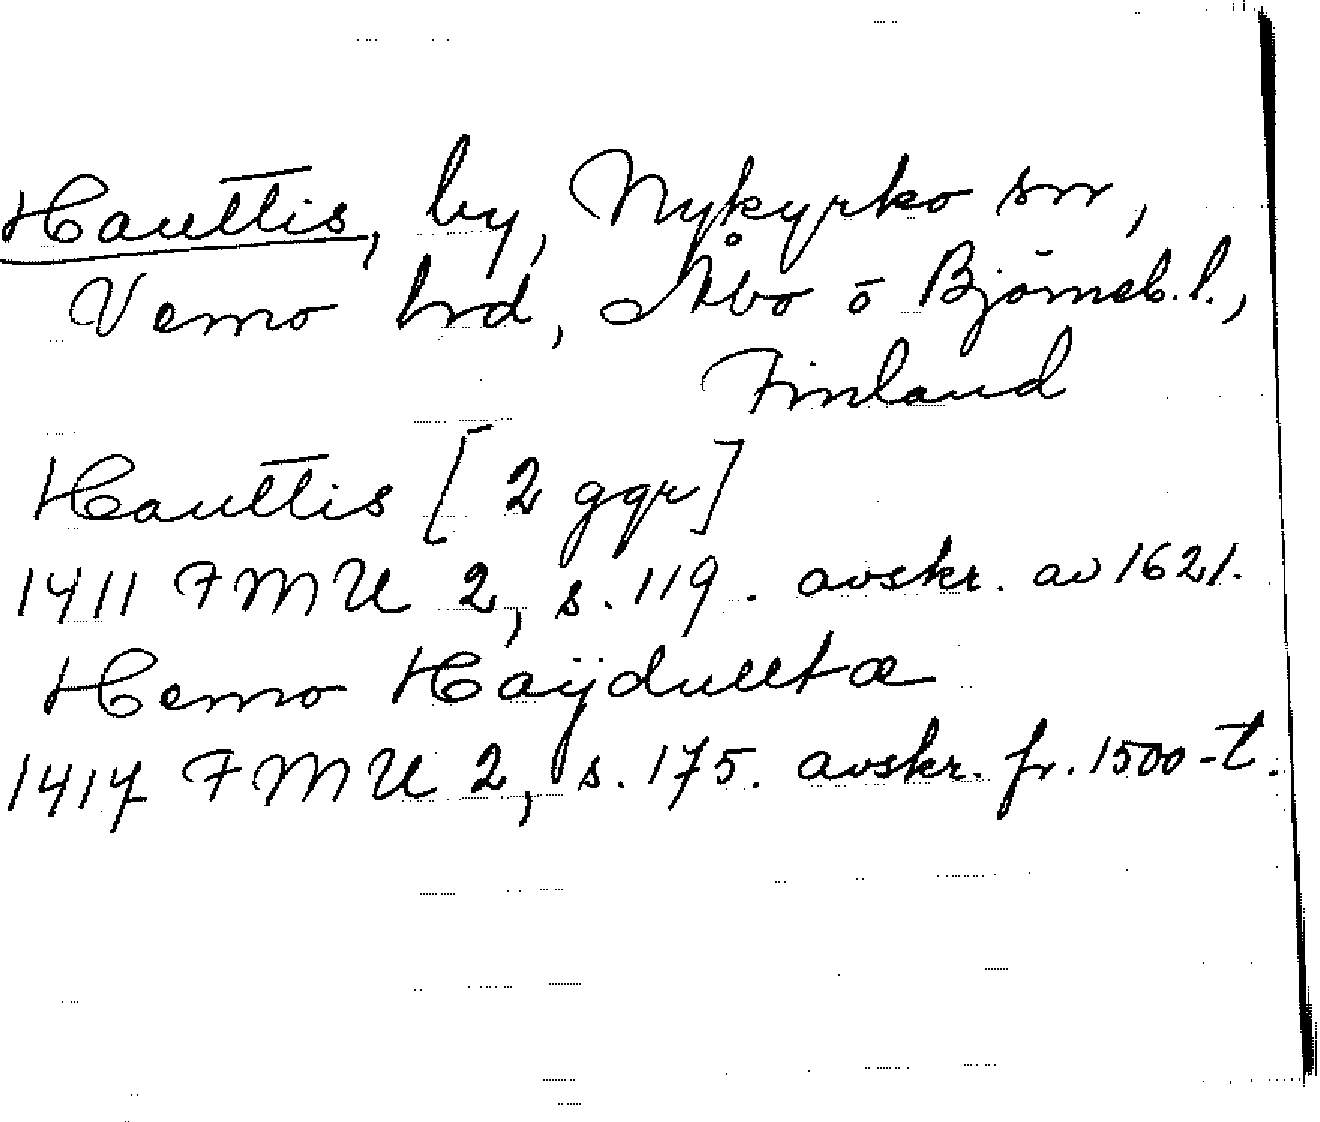 Hauttis, by, Nykyrko sn,
Vemo hd, Åbo o Björneb. l.,
Finland
Hauttis [2 ggr]
1411 FMU 2, s. 119. avskr. av 1621.
Hemo
1417 FMU 2, s. 175. avskr. fr. 1500-t.